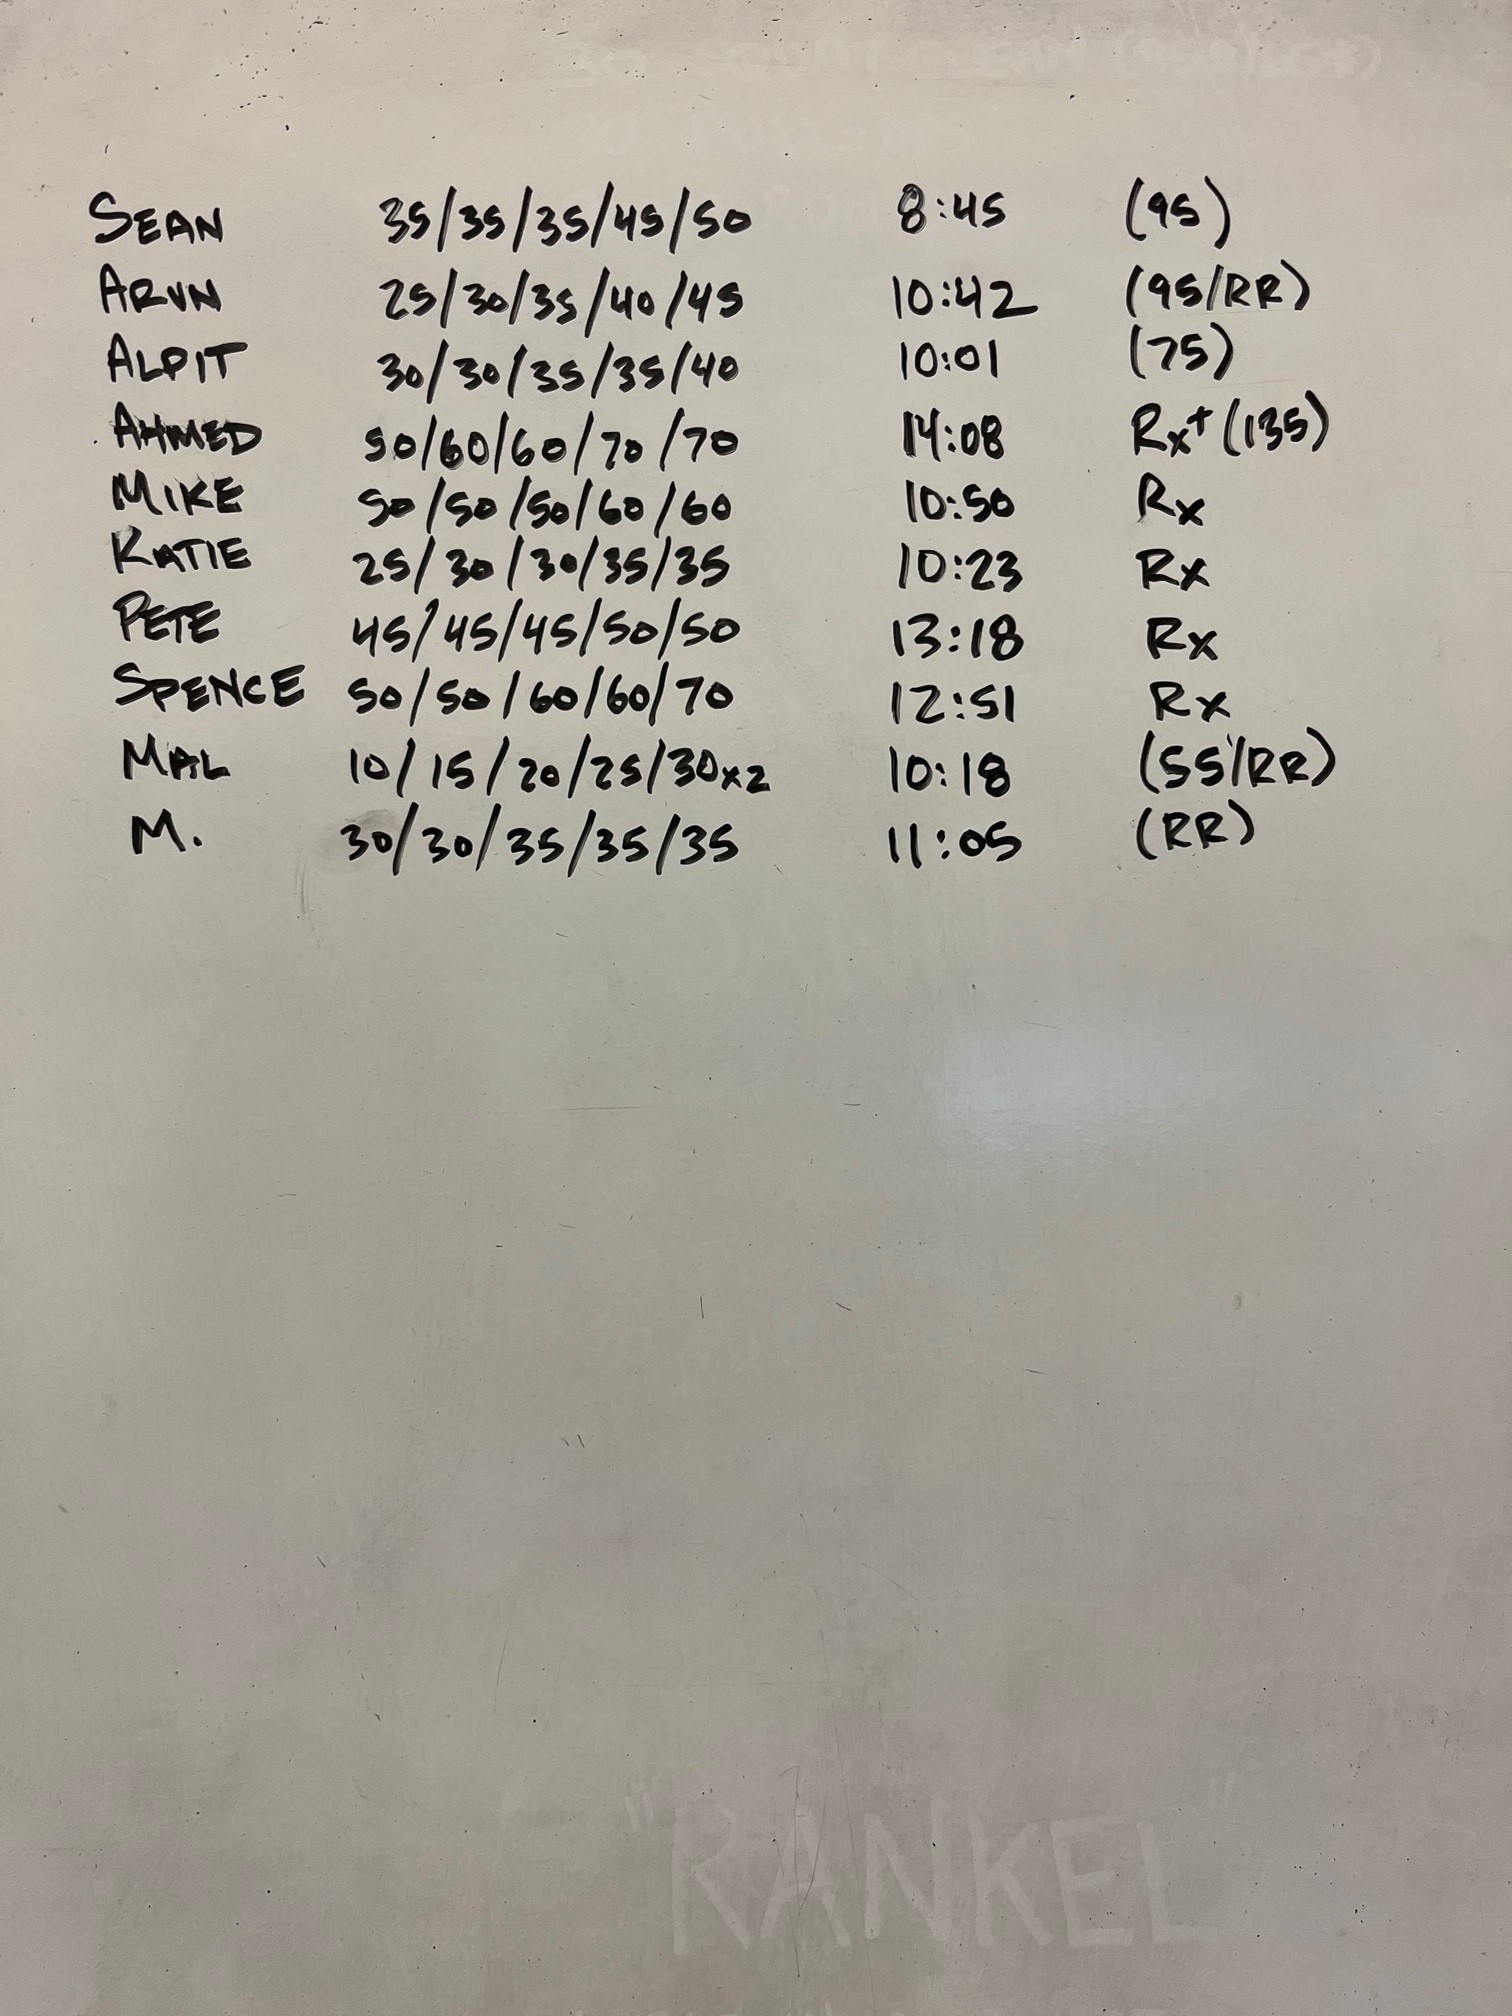 SEAN 35/35/35/45/50 8:45 (95)
ARUN 25/30/35/40/45 10:42 (95/RR)
ALPIT 30/30/35/35/40 10:01 (75)
AHMED 50/60/60/70/70 14:08 Rx+ (135)
MIKE 50/50/50/60/60 10:50 Rx
KATIE 25/30/30/35/35 10:23 Rx
PETE 45/45/45/50/50 13:18 Rx
SPENCE 50/50/60/60/70 12:51 Rx
MAL 10/15/20/25/30x2 10:18 (55/RR)
M. 30/30/35/35/35 11:05 (RR)
"RANKEL"